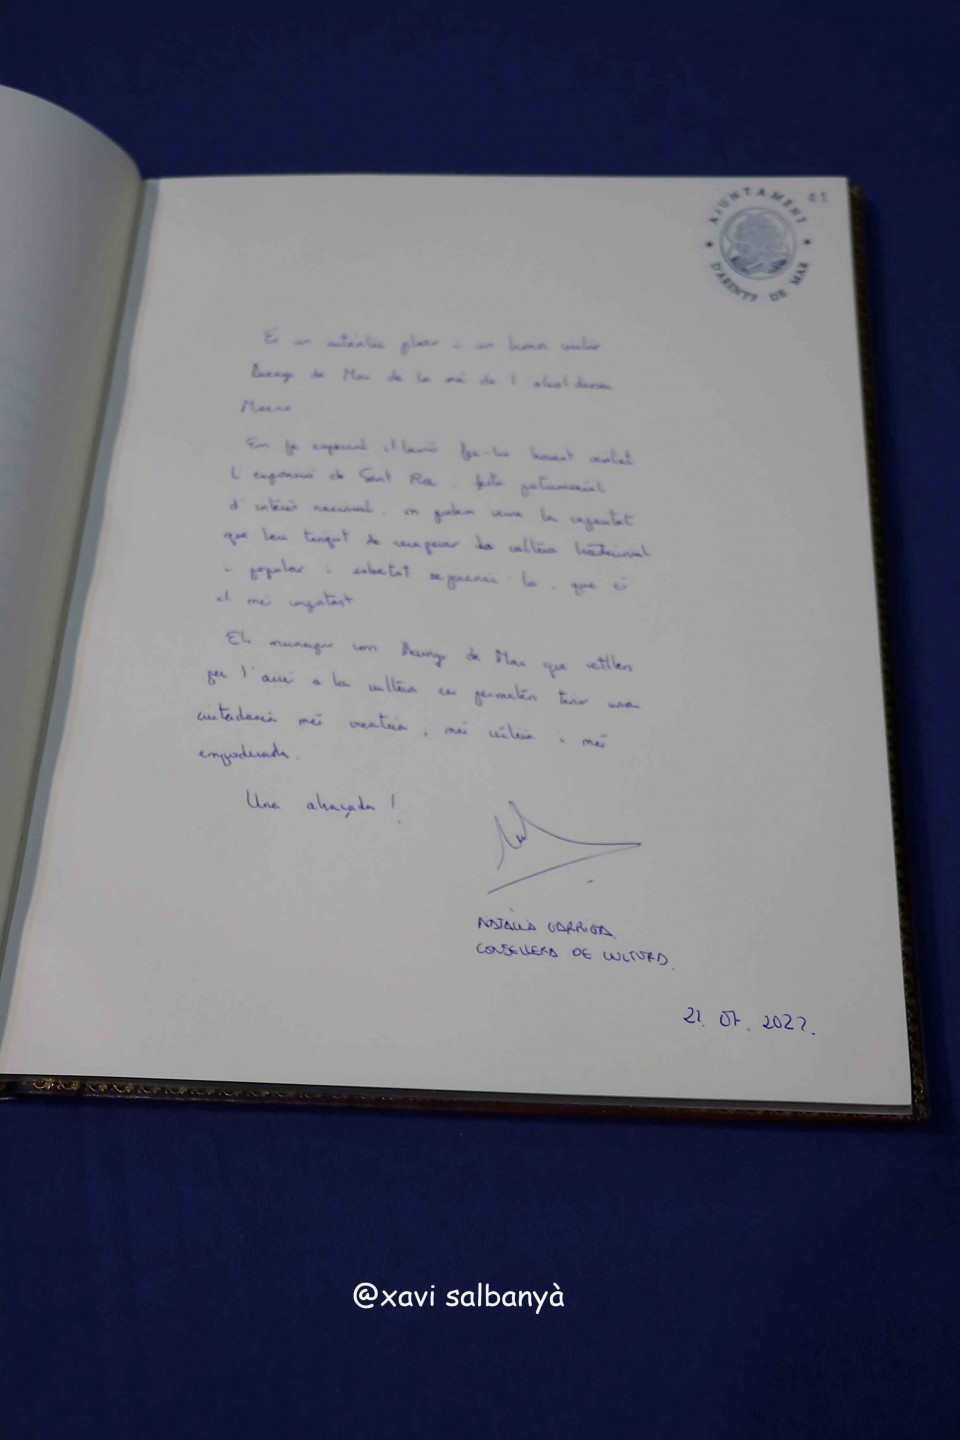 41
AJUNTAMENT
D'ARENYS DE MAR
És un autèntic plaer i un honor visitar
Arenys de Mar de la mà de l'alcaldessa
Em fa especial il·lusió fer-ho havent visitat
l'exposició de Sant Roc, festa patrimonial
d'interès nacional, on podem veure la
que heu tingut de recuperar la cultura tradicional
i popular i sobretot la, que és
el més important
Els municipis com Arenys de Mar que vetllen
per l'accés a la cultura ens permeten tenir una
ciutadania més creativa, més crítica i més
empoderada.
Una abraçada!
NATÀLIA GARRIGA.
CONSELLERA DE CULTURA.
21. 07. 2022.
@xavi salbanyà